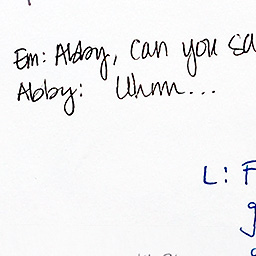 Em: Abby, can you sa
Abby: Uhm...
L: F
g